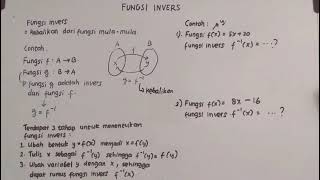 FUNGSI INVERS
Fungsi invers
= Kebalikan dari fungsi mula-mula
Contoh :
Fungsi f : A → B
Fungsi g : B → A
Fungsi g adalah invers
dari fungsi f.
g = f⁻¹
A f B
g = f⁻¹
Kebalikan
Terdapat 3 tahap untuk menentukan
fungsi invers :
1. Ubah bentuk y = f(x) menjadi x = f(y)
2. Tulis x sebagai f⁻¹(y) sehingga f⁻¹(y) = f(y)
3. Ubah variabel y dengan x, sehingga
dapat rumus fungsi invers f⁻¹(x)
Contoh :
y
1). Fungsi f(x) = 5x + 20
fungsi invers f⁻¹(x) = .... ?
2) Fungsi f(x) = 8x - 16
fungsi invers f⁻¹(x) = .... ?